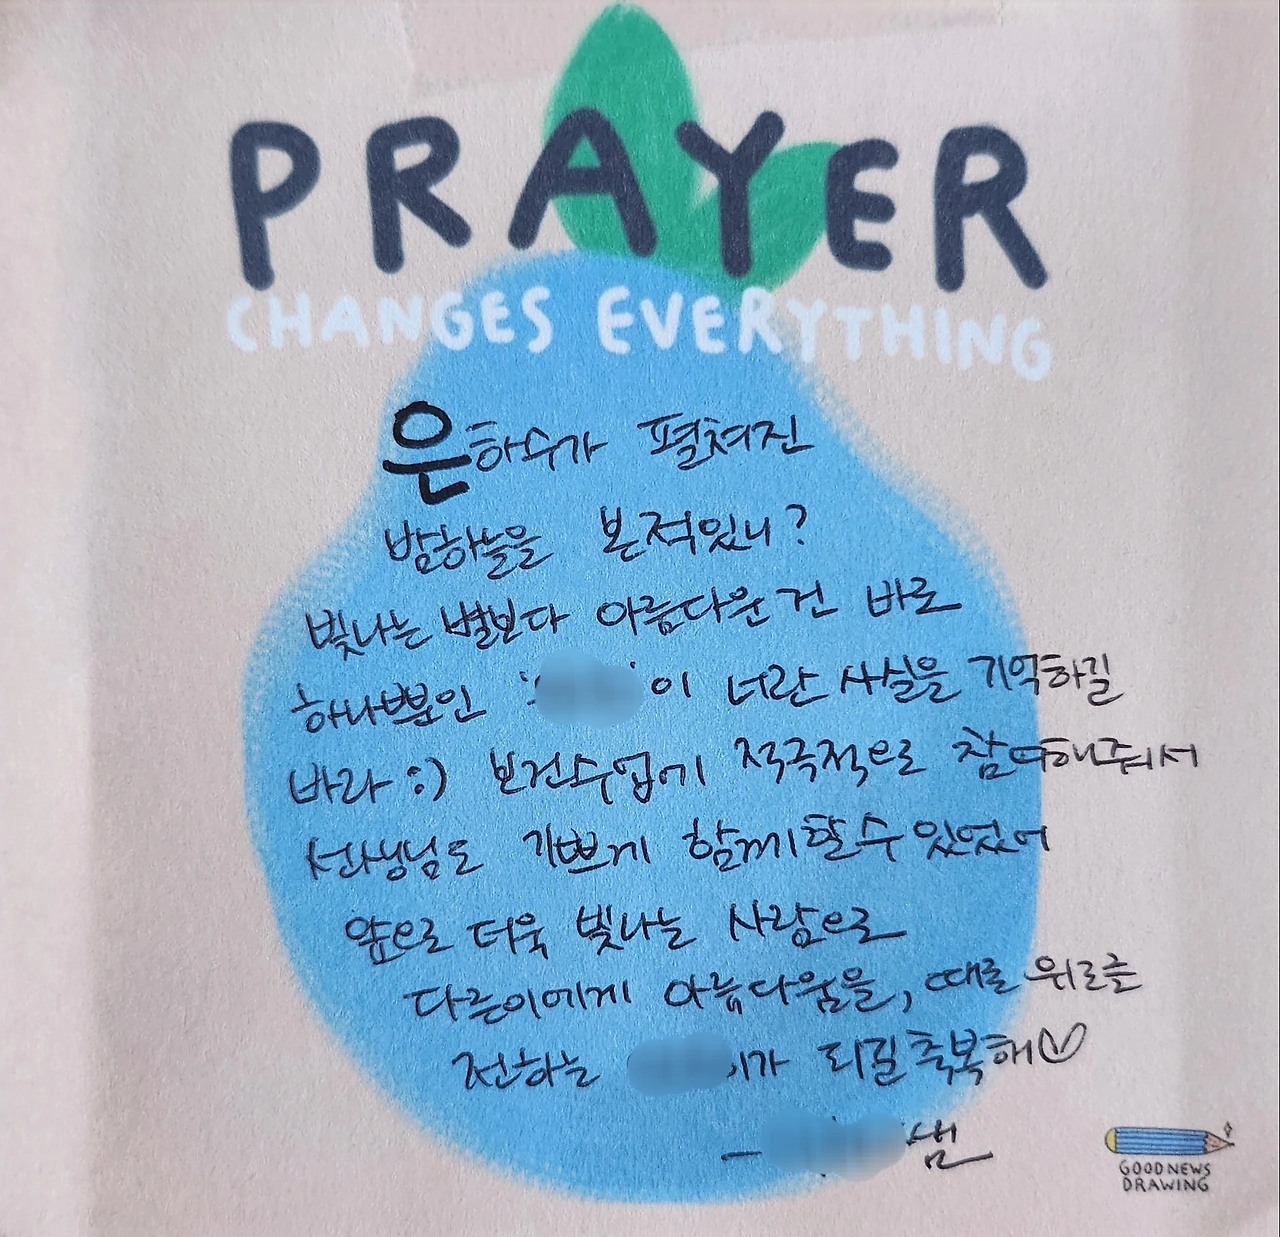 PRAYER
CHANGES EVERYTHING
은하수가 펼쳐진
밤하늘을 본적있니?
빛나는 별보다 아름다운 건 바로
하나뿐인 이 너란 사실을 기억하길
바라 :) 보건수업에 적극적으로 참여해줘서
선생님도 기쁘게 함께할 수 있었어
앞으로 더욱 빛나는 사람으로
다른이에게 아름다움을, 때로 위로를
전하는 이가 되길 축복해♡
- 샘
GOODNEWS
DRAWING